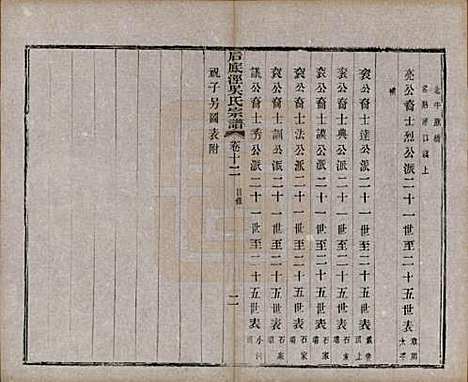 亮公裔士烈公派二十一世至二十五世表
袞公裔士達公派二十一世至二十五世表
袞公裔士典公派二十一世至二十五世表 石家
袞公裔士謨公派二十一世至二十五世表 石家
袞公裔士法公派二十一世至二十五世表 石家
袞公裔士訓公派二十一世至二十五世表 石家
議公裔士秀公派二十一世至二十五世表
后底涇吳氏宗譜
卷十二 目錄 二
祝子另圖表附